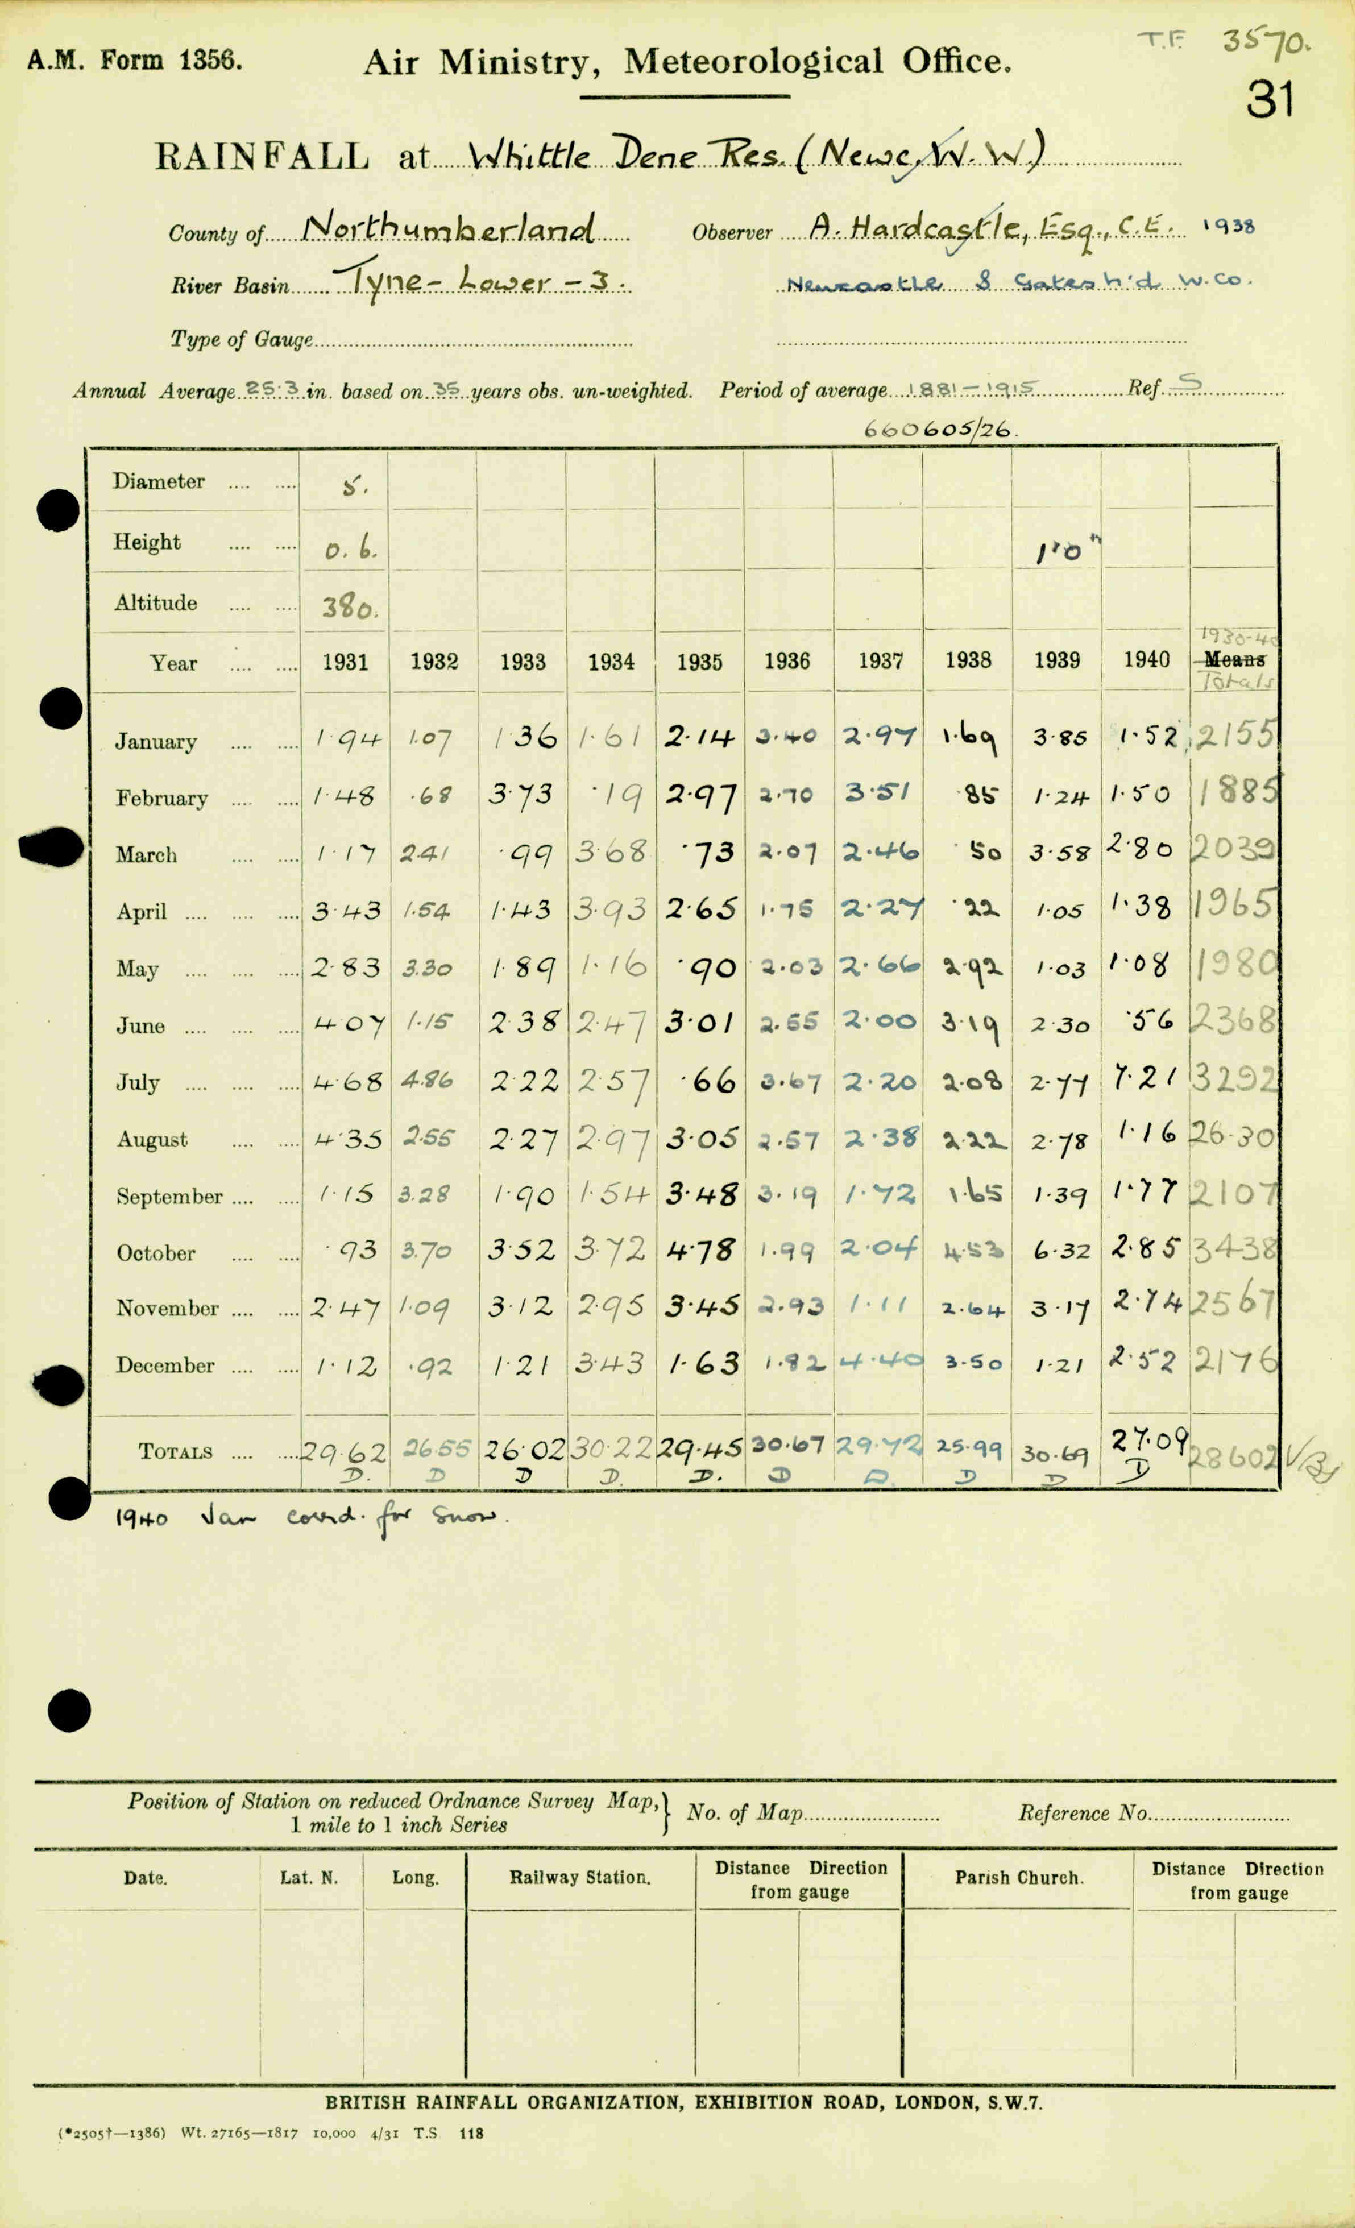 T.F. 3570.
A.M. Form 1356. Air Ministry, Meteorological Office.
31
RAINFALL at Whittle Dene Res. (Newc. W. W.)
County of Northumberland Observer A. Hardcastle, Esq., C.E. 1938
River Basin Tyne - Lower - 3. Newcastle & Gatesh'd W. Co.
Type of Gauge
Annual Average 25.3 in. based on 35 years obs. un-weighted. Period of average 1881-1915 Ref. S
660605/26.
Diameter 5.
Height 0. 6. 1'0"
Altitude 380.
1930-40
Year 1931 1932 1933 1934 1935 1936 1937 1938 1939 1940 Means
Totals
January 1.94 1.07 1.36 1.61 2.14 3.40 2.97 1.69 3.85 1.52 2155
February 1.48 .68 3.73 .19 2.97 2.70 3.51 .85 1.24 1.50 1885
March 1.17 2.41 .99 3.68 .73 2.07 2.46 .50 3.58 2.80 2039
April 3.43 1.54 1.43 3.93 2.65 1.75 2.27 .22 1.05 1.38 1965
May 2.83 3.30 1.89 1.16 .90 2.03 2.66 2.92 1.03 1.08 1980
June 4.07 1.15 2.38 2.47 3.01 2.55 2.00 3.19 2.30 .56 2368
July 4.68 4.86 2.22 2.57 .66 3.67 2.20 2.08 2.77 7.21 3292
August 4.35 2.55 2.27 2.97 3.05 2.57 2.38 2.22 2.78 1.16 26.30
September 1.15 3.28 1.90 1.54 3.48 3.19 1.72 1.65 1.39 1.77 2107
October .93 3.70 3.52 3.72 4.78 1.99 2.04 4.53 6.32 2.85 3438
November 2.47 1.09 3.12 2.95 3.45 2.93 1.11 2.64 3.17 2.74 2567
December 1.12 .92 1.21 3.43 1.63 1.82 4.40 3.50 1.21 2.52 2176
TOTALS 29.62 26.55 26.02 30.22 29.45 30.67 29.72 25.99 30.69 27.09 28602
D. D D D. D. D D. D D D
1940 Jan corrd. for Snow.
Position of Station on reduced Ordnance Survey Map, } No. of Map Reference No.
1 mile to 1 inch Series
Date. Lat. N. Long. Railway Station. Distance Direction from gauge Parish Church. Distance Direction from gauge
BRITISH RAINFALL ORGANIZATION, EXHIBITION ROAD, LONDON, S.W.7.
(*2505†—1386) Wt. 27165—1817 10,000 4/31 T.S. 118